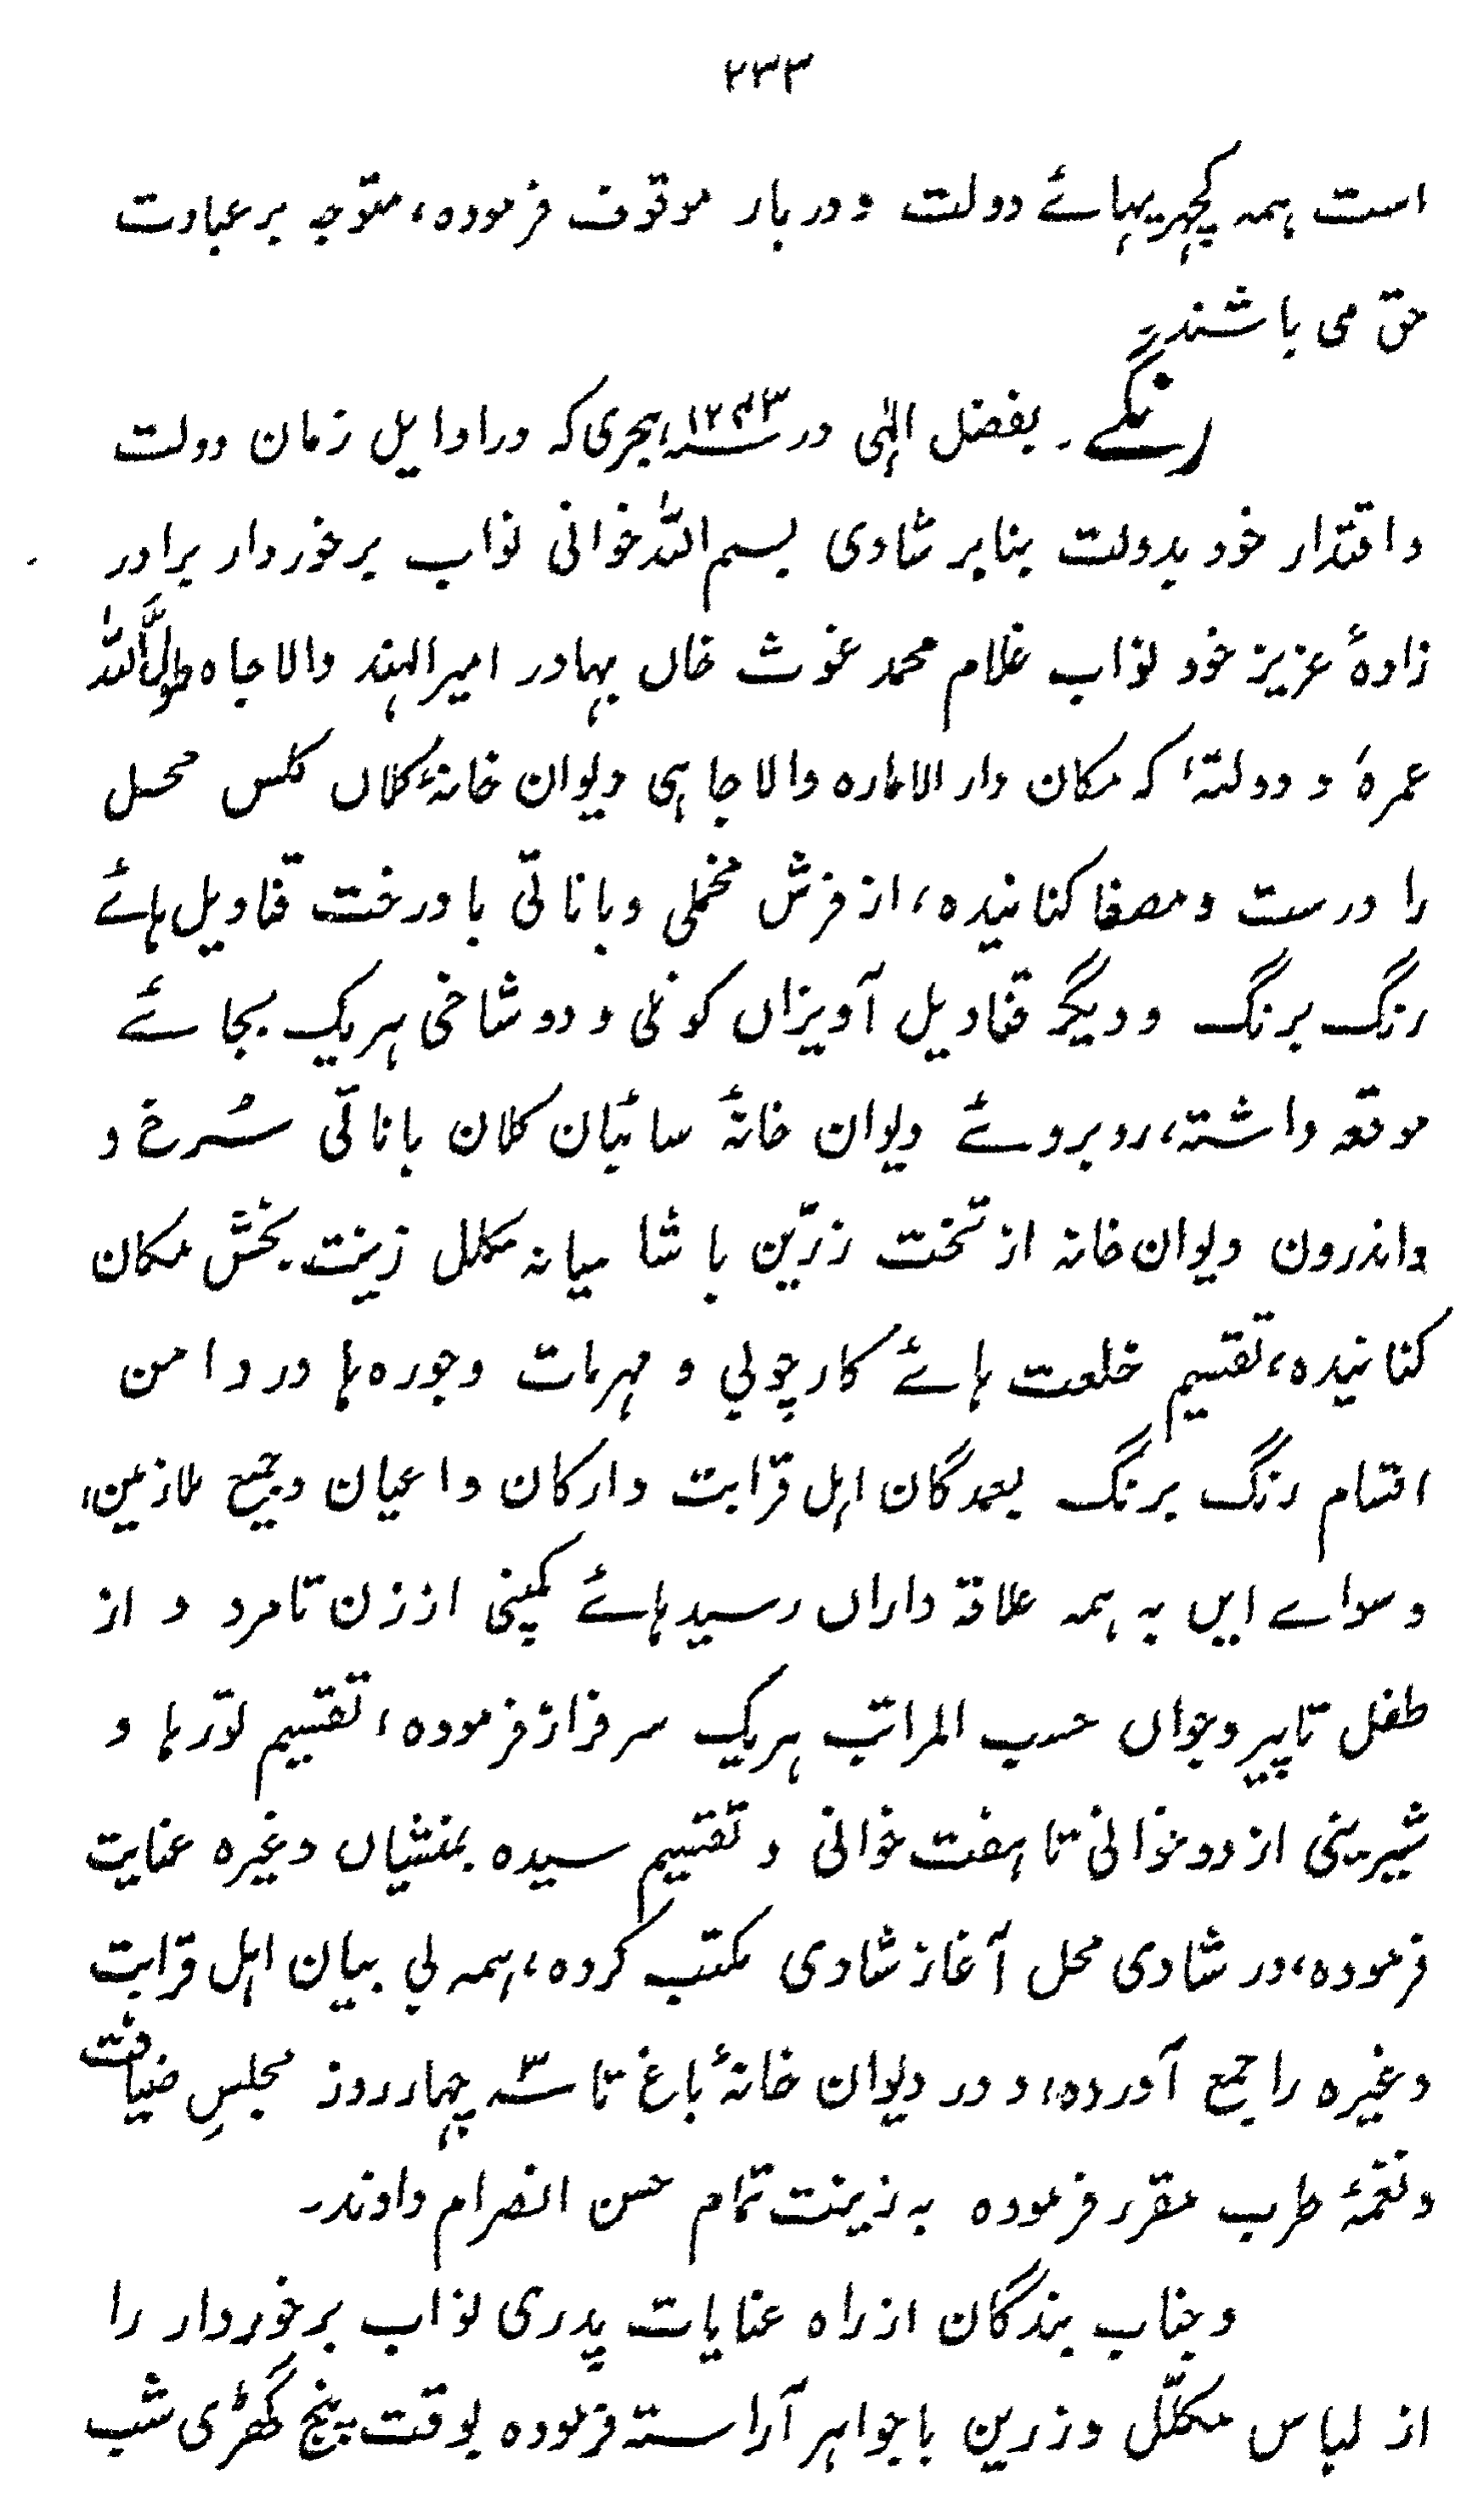 ۲۳۳
است ہمہ کچہریہائے دولت و دربار موقوف فرمودہ، متوجہ بر عبادت
حق می باشند۔
رنگے۔ بفضل الٰہی در ۱۲۴۳؁ ہجری کہ در اوایل زمان دولت
واقتدار خود بدولت بنابر شادی بسم اللہ خوانی نواب برخوردار برادر
زادۂ عزیز خود نواب غلام محمد غوث خاں بہادر امیر الہند والا جاہ طول اللہ
عمرہٗ و دولتہٗ کہ مکان دار الامارہ والا جاہی دیوان خانۂ کلاں کلس محل
را درست و مصفا کنانیدہ، از فرش مخملی و باناتی با درخت قنادیل ہائے
رنگ برنگ و دیگر قنادیل آویزاں کونلی و دو شاخی ہریک بجائے
موقعہ داشتہ، روبروئے دیوان خانۂ سائبان کلان باناتی سُرخ و
واندرون دیوان خانہ از تخت زرّین با شامیانہ مکلل زینت بخش مکان
کنانیدہ، تقسیم خلعت ہائے کارچوبی و مہرمات وجورہ ہا در دامن
اقسام رنگ برنگ بعمدگان اہل قرابت وارکان واعیان وجمیع ملازمین،
و سواے ایں بہ ہمہ علاقہ داراں رسید ہائے کمپنی از زن تا مرد و از
طفل تا پیر وجواں حسب المراتب ہریک سرفراز فرمودہ، تقسیم تورہا و
شیرینی از دو خوانی تا ہفت خوانی و تقسیم سیدہ بمنشیاں وغیرہ عنایت
فرمودہ، در شادی محل آغاز شادی مکتب کردہ، ہمہ بی بیان اہل قرابت
وغیرہ را جمع آوردہ، و در دیوان خانۂ باغ تا سہ۳ چہار روز مجلسِ ضیافت
ونغمۂ طرب مقرر فرمودہ بہ زینت تمام حسن انصرام دادند۔
وجناب بندگان از راہ عنایات پدری نواب برخوردار را
از لباس مکلّل وزرین باجواہر آراستہ فرمودہ بوقت پنج گھڑی شب